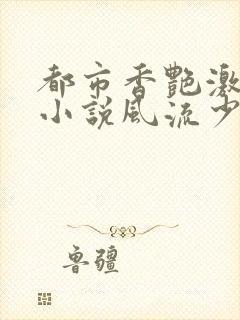 都市香艷激
小說風流少
魯疆